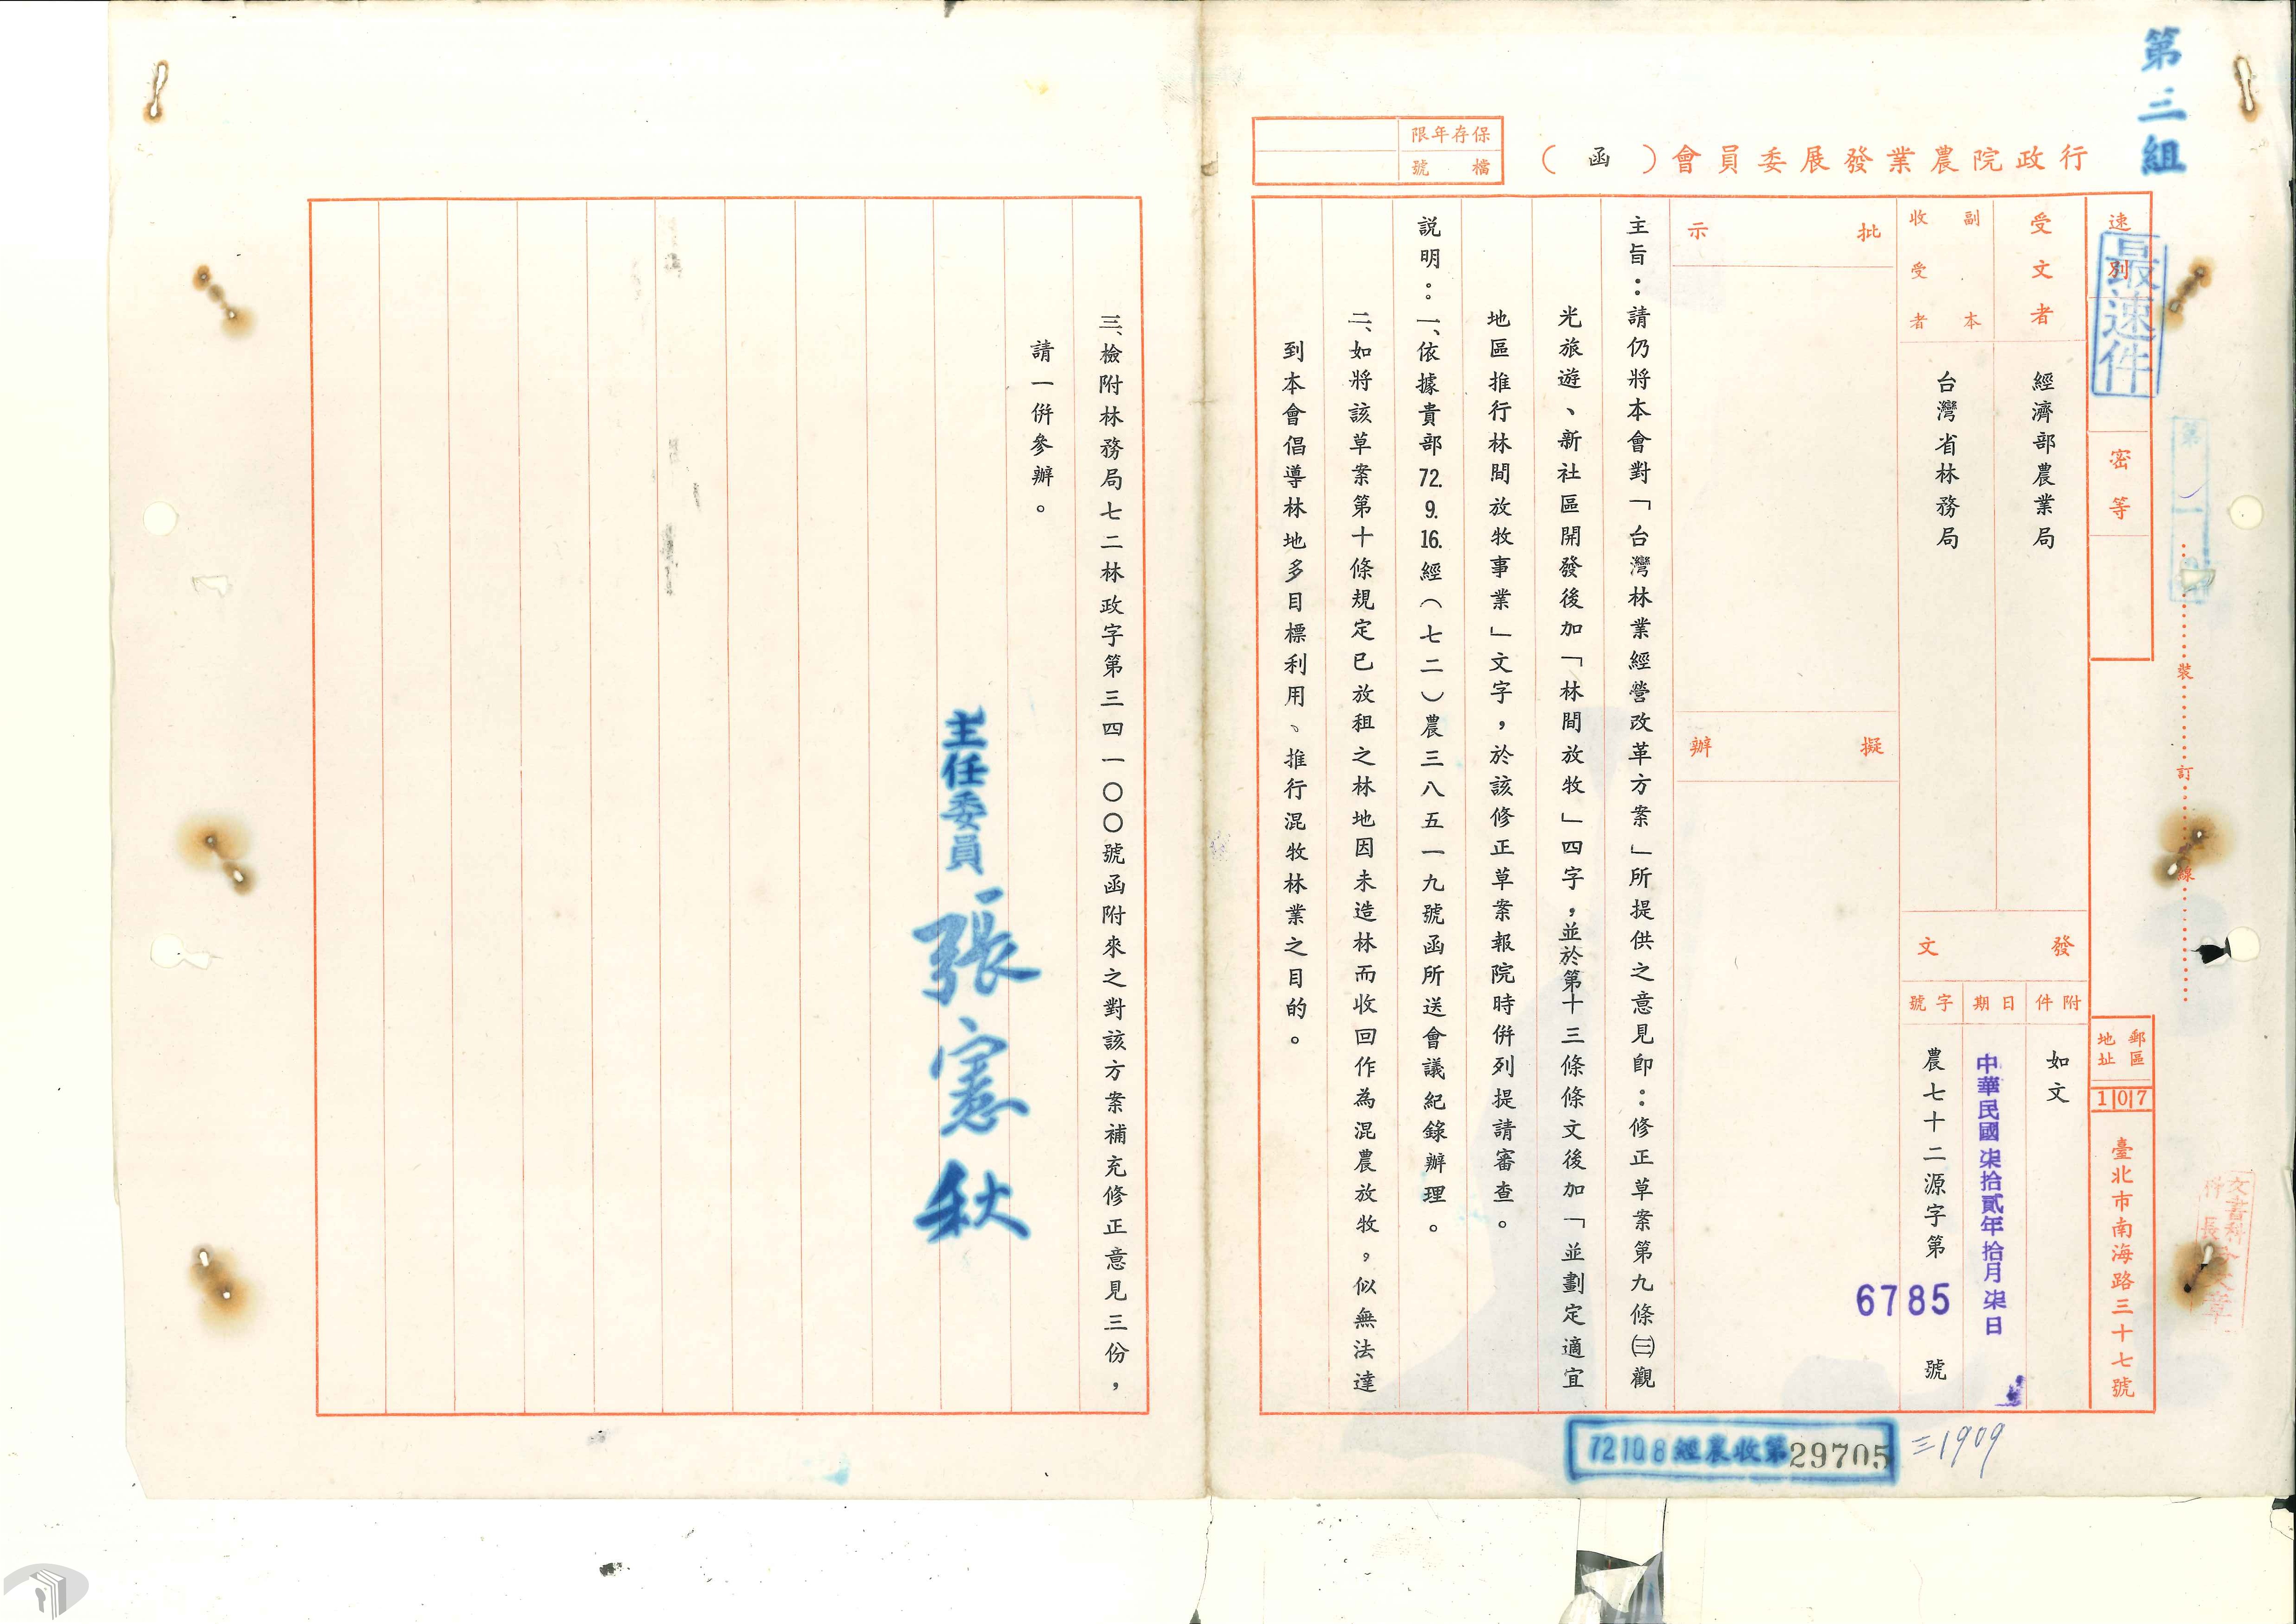 第三組
行政院農業發展委員會（函）
保存年限
檔號
速別
最速件
密等
郵區
地址
107
臺北市南海路三十七號
受文者
經濟部農業局
副本收受者
台灣省林務局
發文
附件
如文
日期
中華民國柒拾貳年拾月柒日
字號
農七十二源字第6785號
批示
擬辦
主旨：請仍將本會對「台灣林業經營改革方案」所提供之意見卽：修正草案第九條㈢觀
光旅遊、新社區開發後加「林間放牧」四字，並於第十三條條文後加「並劃定適宜
地區推行林間放牧事業」文字，於該修正草案報院時併列提請審查。
說明：一、依據貴部72.9.16.經（七二）農三八五一九號函所送會議紀錄辦理。
二、如將該草案第十條規定已放租之林地因未造林而收回作為混農放牧，似無法達
到本會倡導林地多目標利用、推行混牧林業之目的。
三、檢附林務局七二林政字第三四一〇〇號函附來之對該方案補充修正意見三份，
請一併參辦。
主任委員 張憲秋
裝
訂
線
72.10.8 經農收第29705
三1909